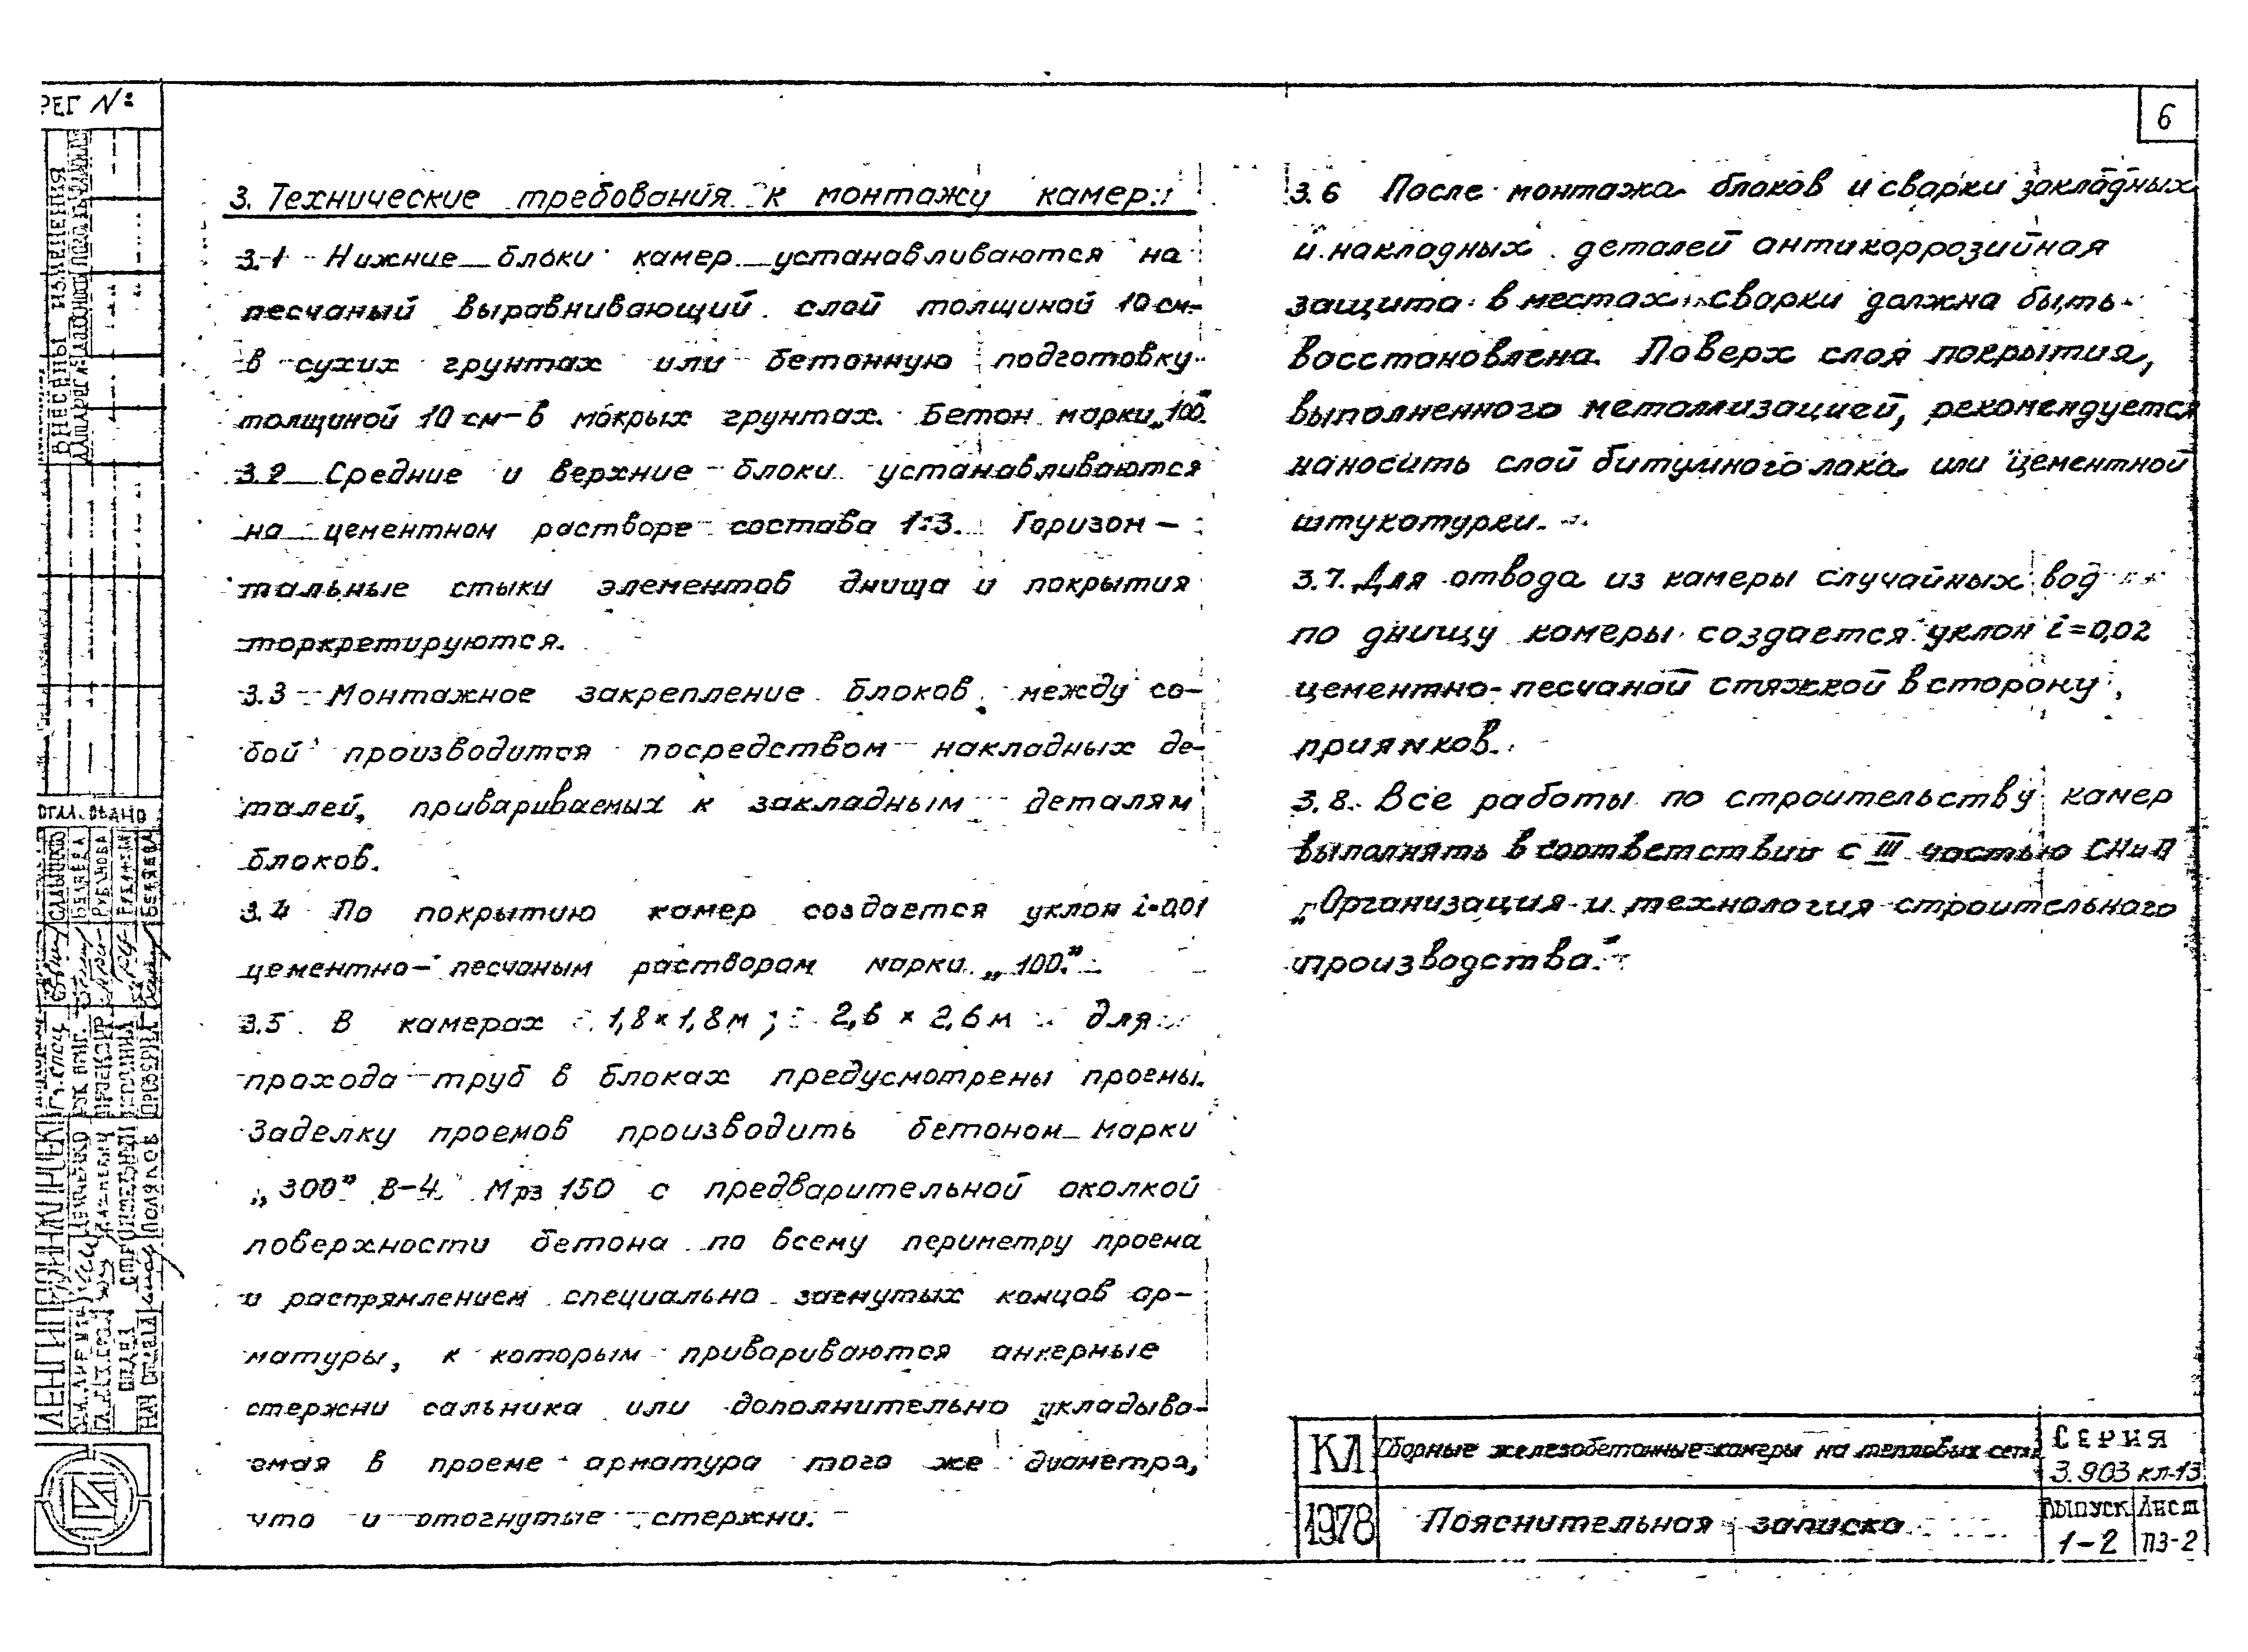 РЕГ №
6
3. Технические требования к монтажу камер.
3.1 Нижние блоки камер устанавливаются на
песчаный выравнивающий слой толщиной 10 см-
в сухих грунтах или бетонную подготовку
толщиной 10 см-в мокрых грунтах. Бетон марки „100".
3.2 Средние и верхние блоки устанавливаются
на цементном растворе состава 1:3. Горизон-
тальные стыки элементов днища и покрытия
торкретируются.
3.3 Монтажное закрепление блоков между со-
бой производится посредством накладных де-
талей, привариваемых к закладным деталям
блоков.
3.4 По покрытию камер создается уклон i=0,01
цементно-песчаным раствором марки „100."
3.5 В камерах 1,8×1,8м; 2,6×2,6м для
прохода труб в блоках предусмотрены проемы.
Заделку проемов производить бетоном марки
„300" В-4 Мрз 150 с предварительной околкой
поверхности бетона по всему периметру проема
и распрямлением специально загнутых концов ар-
матуры, к которым привариваются анкерные
стержни сальника или дополнительно укладыва-
емая в проеме арматура того же диаметра,
что и отогнутые стержни.
3.6 После монтажа блоков и сварки закладных
и накладных деталей антикоррозийная
защита в местах сварки должна быть
восстановлена. Поверх слоя покрытия,
выполненного металлизацией, рекомендуется
наносить слой битумного лака или цементной
штукатурки.
3.7. Для отвода из камеры случайных вод
по днищу камеры создается уклон i=0,02
цементно-песчаной стяжкой в сторону
приямков.
3.8. Все работы по строительству камер
выполнять в соответствии с III частью СНиП
„Организация и технология строительного
производства."
КЛ Сборные железобетонные камеры на тепловых сетях
Серия
3.903 кл-13
1978 Пояснительная записка
Выпуск Лист
1-2 ПЗ-2
ВНЕСЕНЫ ИЗМЕНЕНИЯ